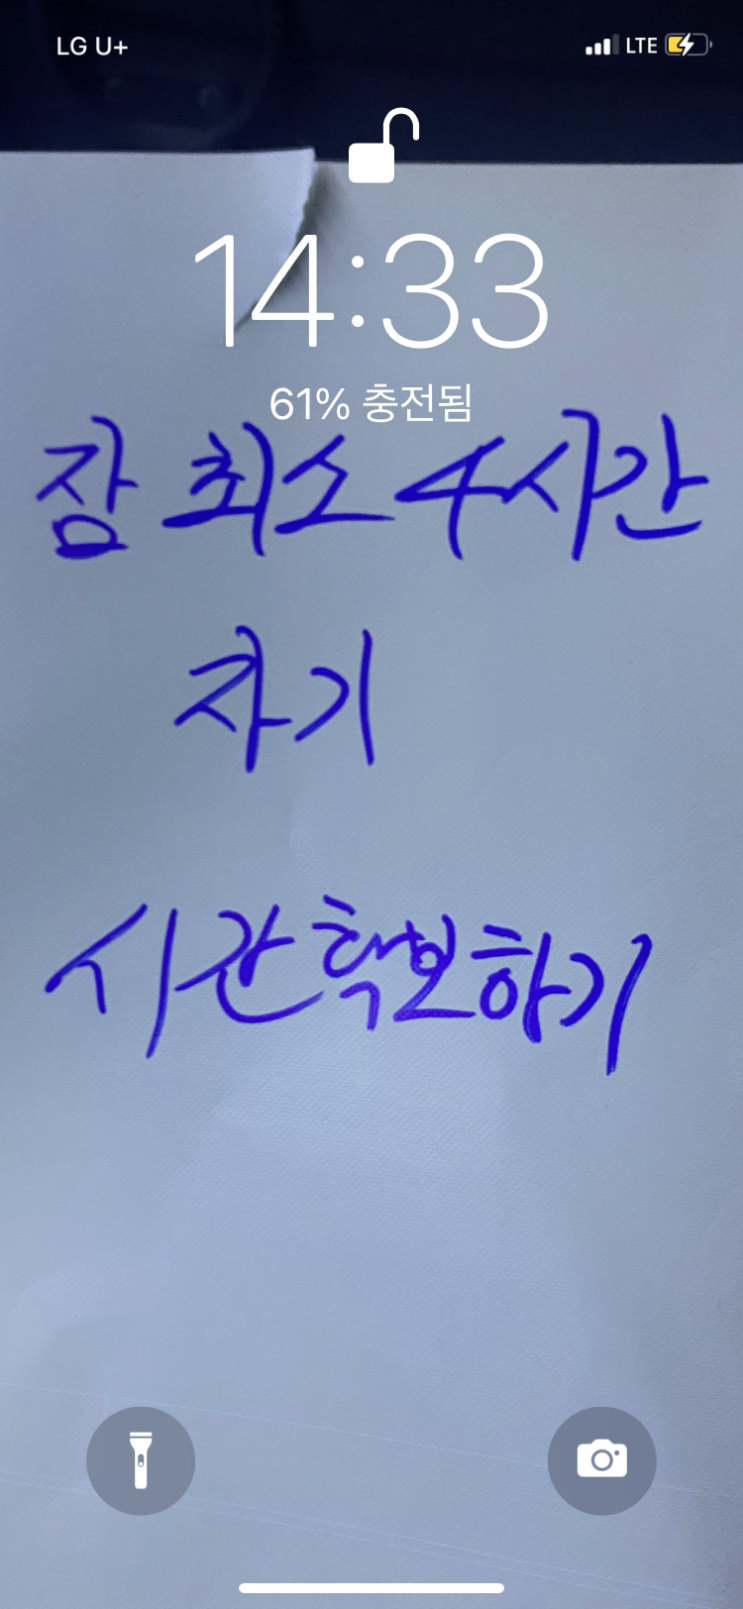 LG U+ LTE
14:33
61% 충전됨
잠 최소 4시간
자기
시간확보하기